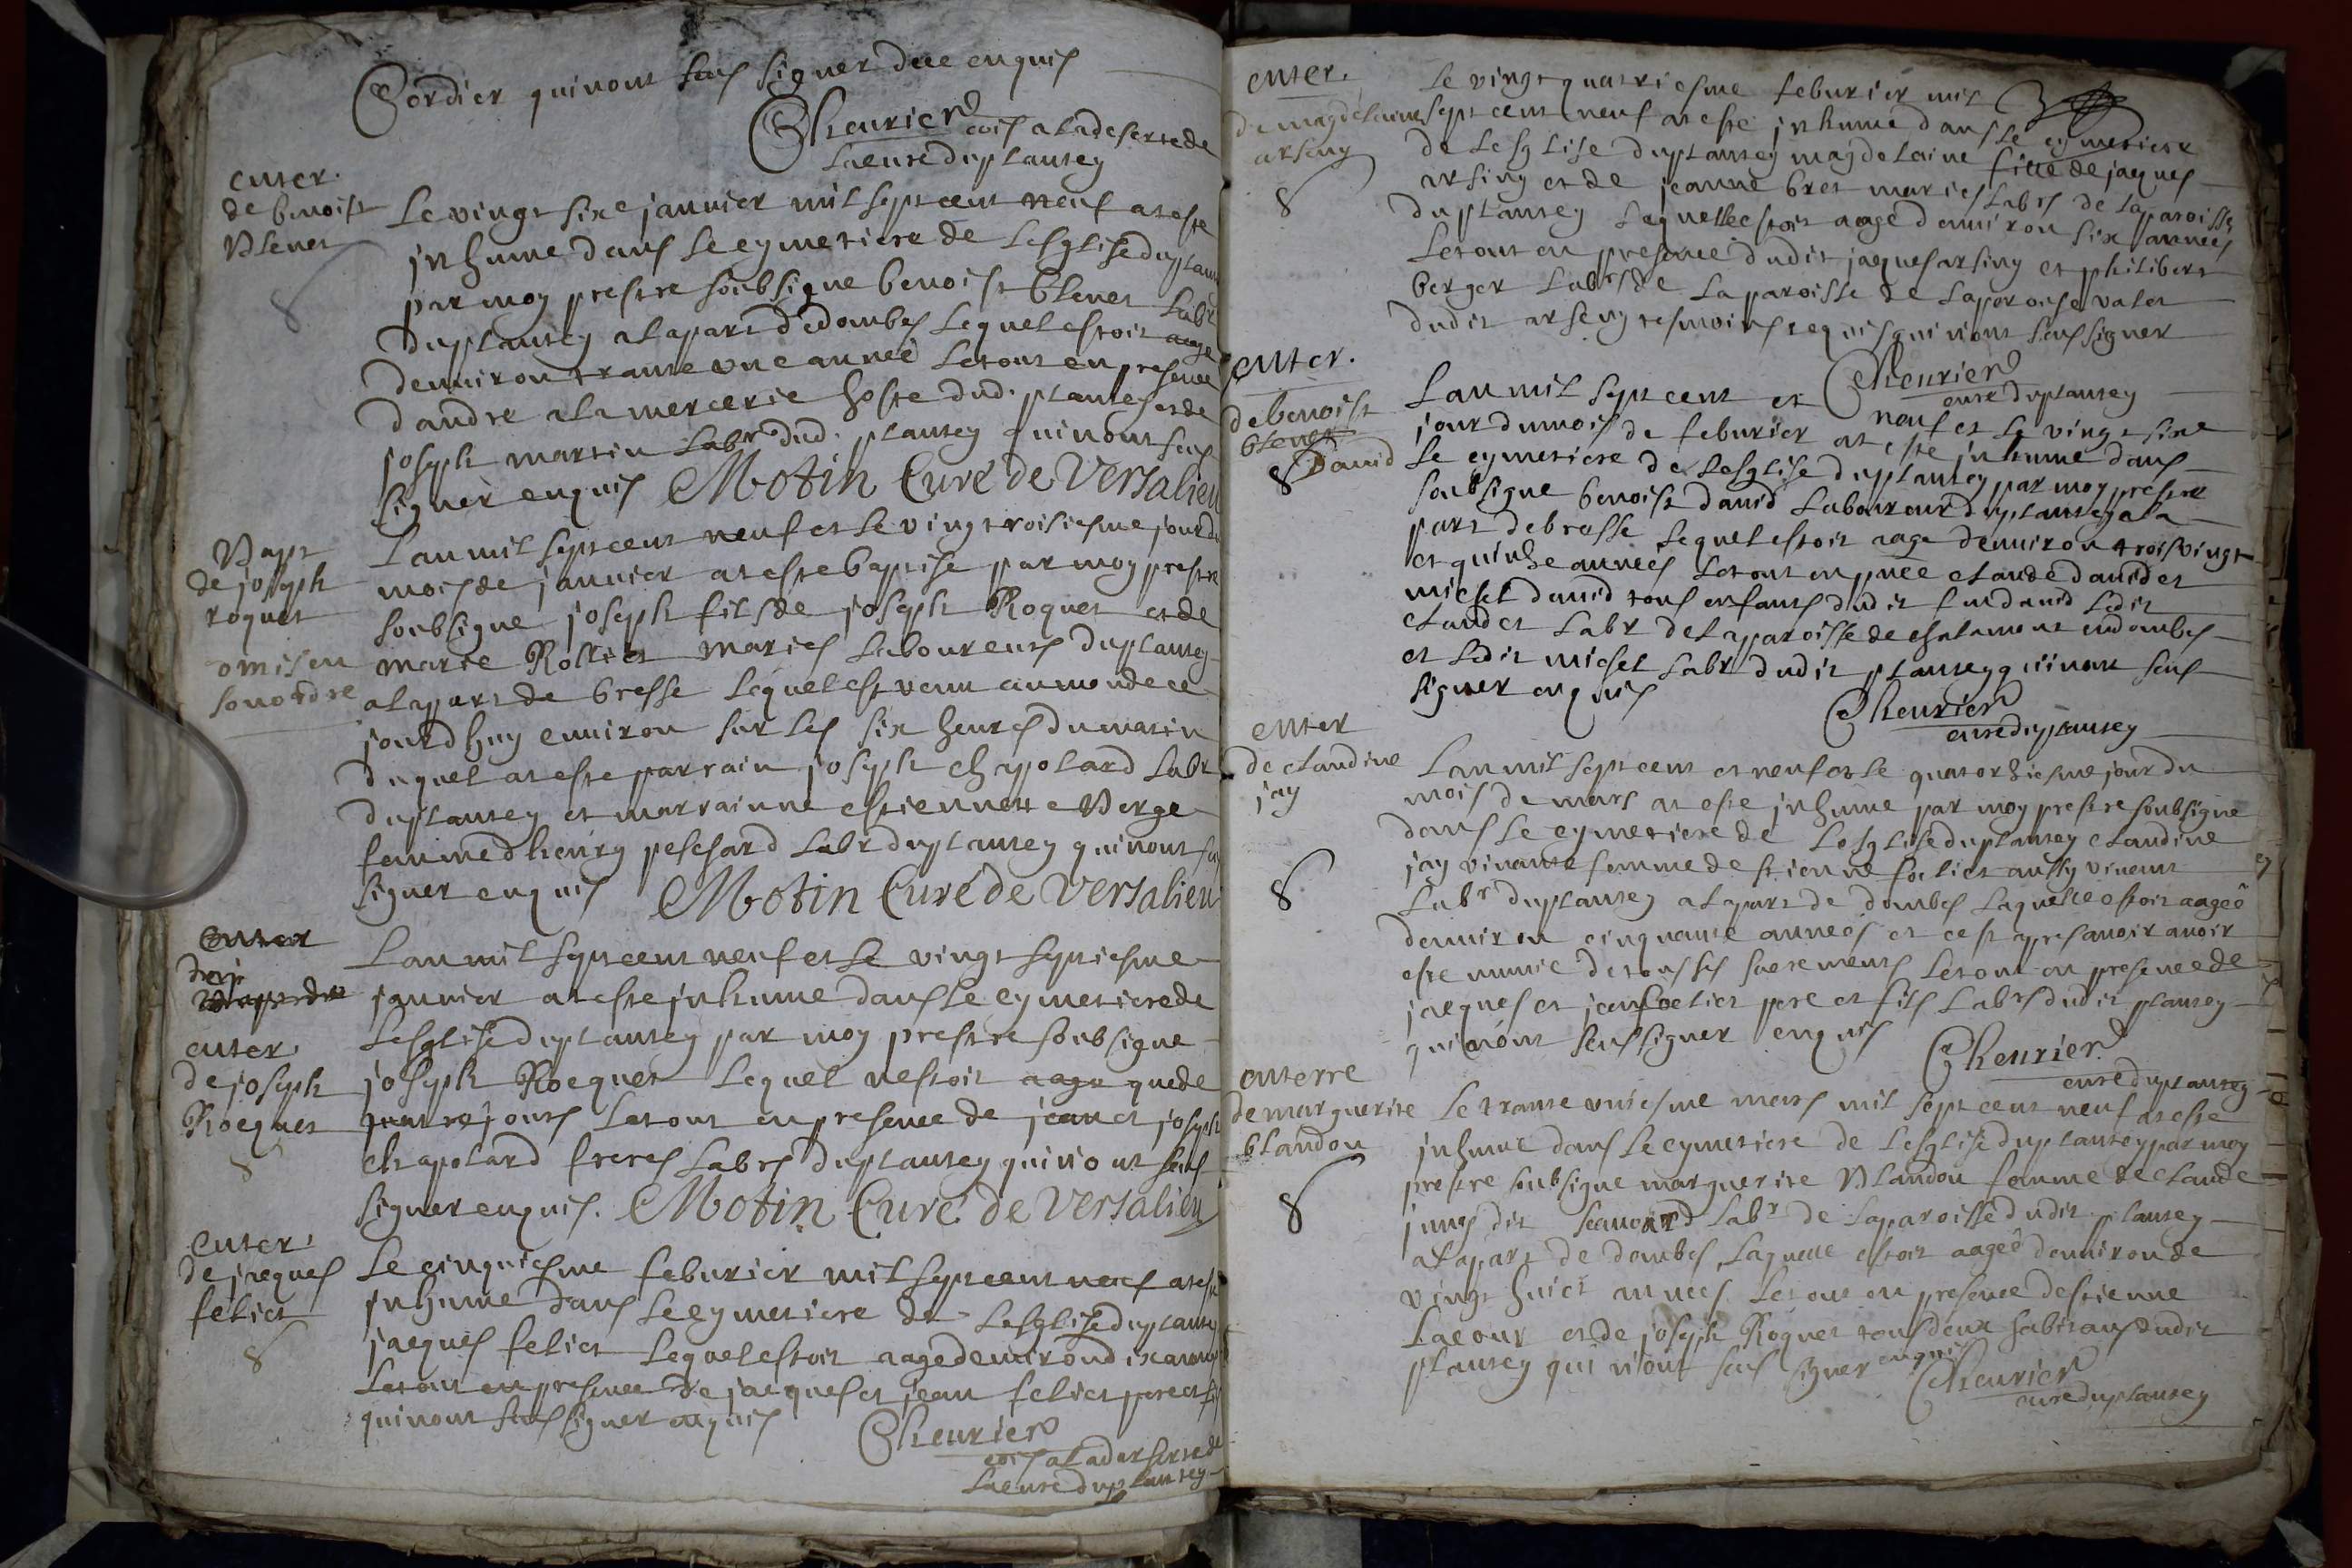 Cordier qui nont sceu signer de ce enquis
Cheurier
com a la deserte de
la cure du plantey
enter.
de benoist
Blenet
Le vingt sixe januier mil sept cent neuf at este
inhume dans le cymetiere de lesglise du plantey
par moy prestre soubsigne benoist blenet Labr
du plantey a la part de dombes lequel estoit aage
denuiron trante une anneé le tout en presence
dandre a la mercerie hoste dud. plantey et de
joseph martin Labr dud. plantey qui nont sceu
signer enquis Motin Curé de Versalieu
Bapt
de joseph
roquet
omis en
son ordre
Lan mil sept cent neuf et le vingt troisiesme jour du
mois de januier at este baptise par moy prestre
soubsigne joseph fils de joseph Roquet et de
marie Rolliet mariés laboureurs du plantey
a la part de bresse lequel est venu au monde ce
jourdhuy enuiron sur les six heures du matin
duquel at este parrain joseph chapolard Labr
du plantey et marrainne estiennette Verge
femme dhenry peschard Labr du plantey qui nont sceu
signer enquis Motin Curé de Versalieu
enter
enter.
de joseph
Rocquet
Lan mil sept cent neuf et le vingt septiesme
januier at este inhume dans le cymetiere de
lesglise du plantey par moy prestre soubsigne
joseph Rocquet lequel nestoit aage que de
quatre jours le tout en presence de jean et joseph
chapolard freres Labrs du plantey qui nont sceu
signer enquis. Motin Curé de Versalieu
enter.
de jacques
feliet
Le cinquiesme feburier mil sept cent neuf at este
inhume dans le cymetiere de lesglise du plantey
jacques feliet lequel estoit aagé denuiron dix années
le tout en presence de jacques et jean feliet pere et fils
qui nont sceu signer enquis
Cheurier
com a la deserte de
la cure du plantey
enter.
de magdelainne
arsing
Le vingt quatriesme feburier mil
sept cent neuf at este inhume dans le cymetiere
de lesglise du plantey magdelaine fille de jaques
arsing et de jeanne bret mariés Labrs de la paroisse
du plantey laquelle estoit aage denuiron six années
le tout en presence dudit jaques arsing et philibert
berger Labrs de la paroisse de valet
dudit arseng tesmoins requis qui nont sceu signer
Cheurier
cure du plantey
enter.
de benoist
blenet
Dauid
Lan mil sept cent et neuf et le vingt sixe
jour du mois de feburier at este inhume dans
le cymetiere de lesglise du plantey par moy prestre
soubsigne benoist dauid laboureur du plantey a la
part de bresse lequel estoit aage denuiron trois vingt
et quinze années le tout en pnce claude dauid et
michel dauid tous enfans dudit feu dauid ledit
claude Labr de la paroisse de chalamont en dombes
et ledit michel Labr dudit plantey qui nont sceu
signer enquis
Cheurier
cure du plantey
enter
de claudine
jay
Lan mil sept cent et neuf et le quatorziesme jour du
mois de mars at este inhume par moy prestre soubsigne
dans le cymetiere de lesglise du plantey claudine
jay viuante femme destienne feliet aussy viuant
Labr du plantey a la part de dombes laquelle estoit aageé
denuiron cinquante années et cest apres auoir auoir
este munie de tous ses sacrements le tout en presence de
jacques et jean feliet pere et fils Labrs dudit plantey
qui nont sceu signer enquis
Cheurier
cure du plantey
enterre
de marguerite
blandon
Le trante uniesme mars mil sept cent neuf at este
inhume dans le cymetiere de lesglise du plantey par moy
prestre soubsigne marguerite Blandon femme de claude
dit Labr de la paroisse dudit plantey
a la part de dombes, laquelle estoit aageé denuiron de
vingt huict années le tout en presence destienne
Lacour et de joseph Roquet tous deux habitans dudit
plantey qui nont sceu signer enquis
Cheurier
cure du plantey